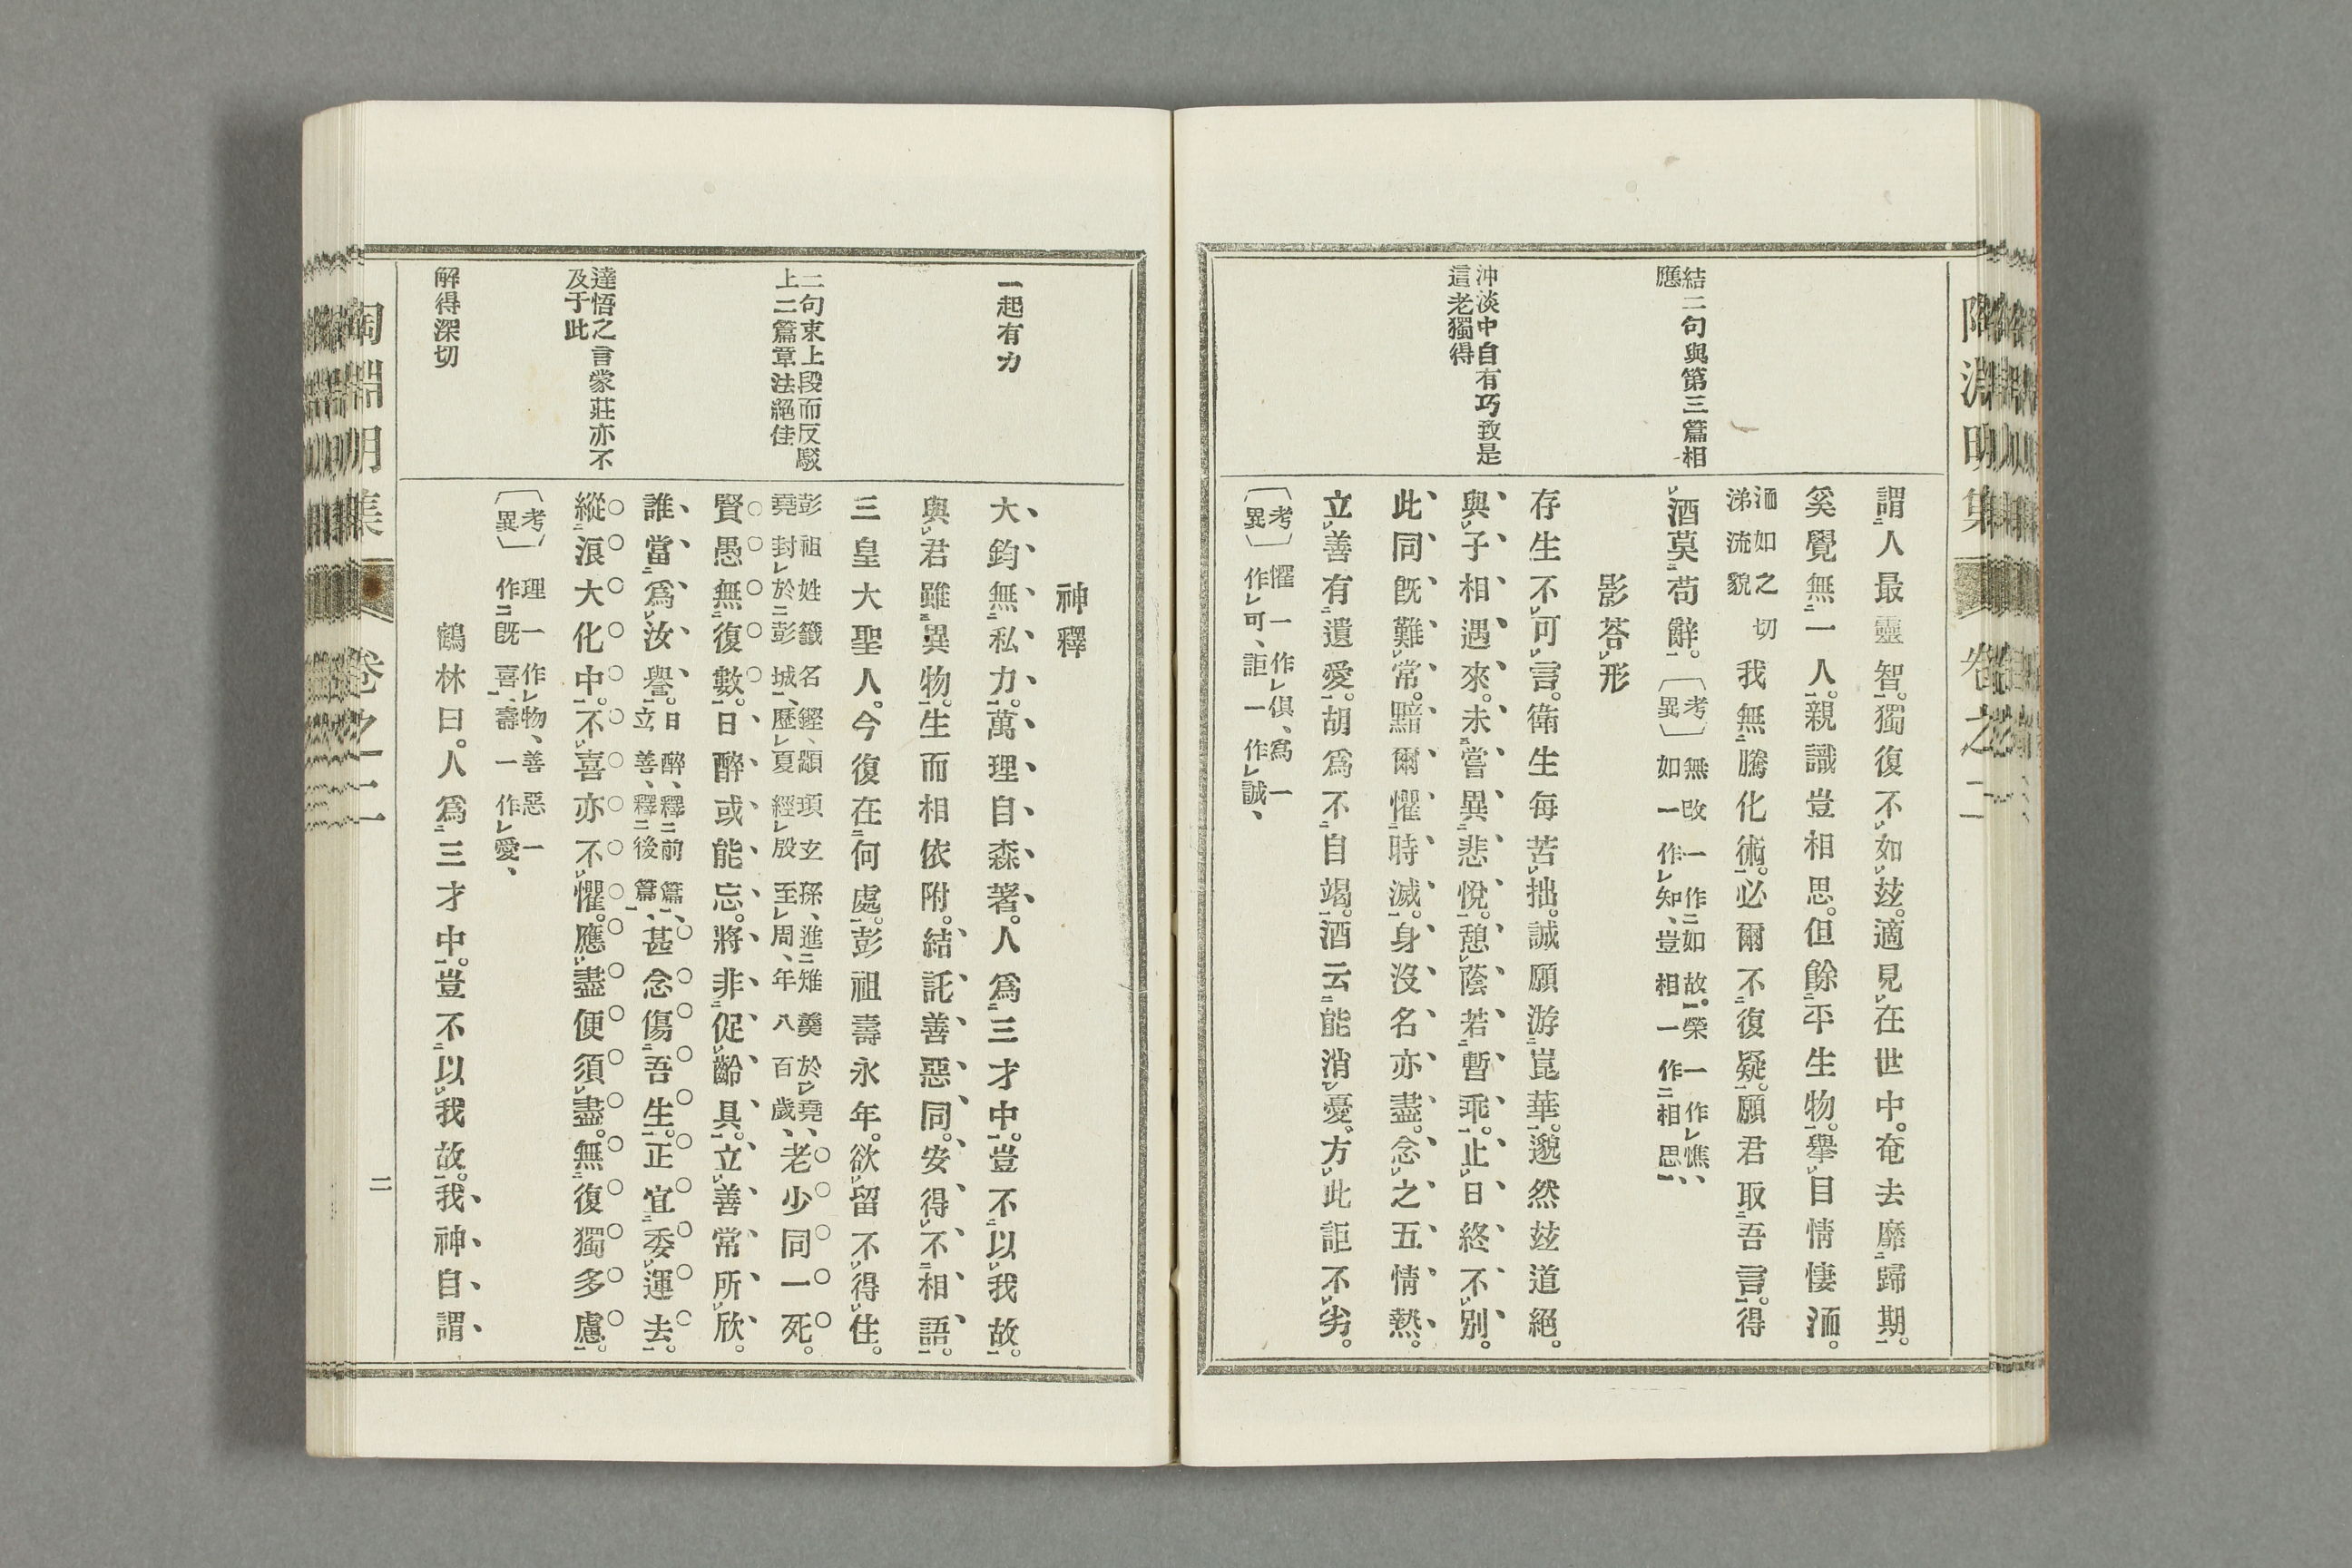 陶淵明集 卷之二
結二句與第三篇相
應
沖淡中自有巧致是
這老獨得
謂人最靈智。獨復不如玆。適見在世中。奄去靡歸期。
奚覺無一人。親識豈相思。但餘平生物。擧目情悽洏。
洏如之切
涕流貌
我無騰化術。必爾不復疑。願君取吾言。得
酒莫苟辭。
〔考異〕
無改一作如故。榮一作憔、
如一作知、豈相一作相思、
影荅形
存生不可言。衛生每苦拙。誠願游崑華。邈然玆道絕。
與子相遇來。未嘗異悲悅。憩蔭若暫乖。止日終不別。
此同旣難常。黯爾懼時滅。身沒名亦盡。念之五情熱。
立善有遺愛。胡爲不自竭。酒云能消憂。方此詎不劣。
〔考異〕
懼一作俱、爲一
作可、詎一作誠、
一起有力
二句束上段而反駁
上二篇章法絕佳
達悟之言蒙莊亦不
及于此
解得深切
神釋
大鈞無私力。萬理自森著。人爲三才中。豈不以我故。
與君雖異物。生而相依附。結託善惡同。安得不相語。
三皇大聖人。今復在何處。彭祖壽永年。欲留不得住。
彭祖姓籛名鏗、顓頊玄孫、進雉羹於堯、
堯封於彭城、歷夏經殷至周、年八百歲、
老少同一死。
賢愚無復數。日醉或能忘。將非促齡具。立善常所欣。
誰當爲汝譽。
日醉、釋前篇、
立善、釋後篇、
甚念傷吾生。正宜委運去。
縱浪大化中。不喜亦不懼。應盡便須盡。無復獨多慮。
〔考異〕
理一作物、善惡一
作旣喜、壽一作愛、
鶴林曰。人爲三才中。豈不以我故。我神自謂
陶淵明集 卷之二 二